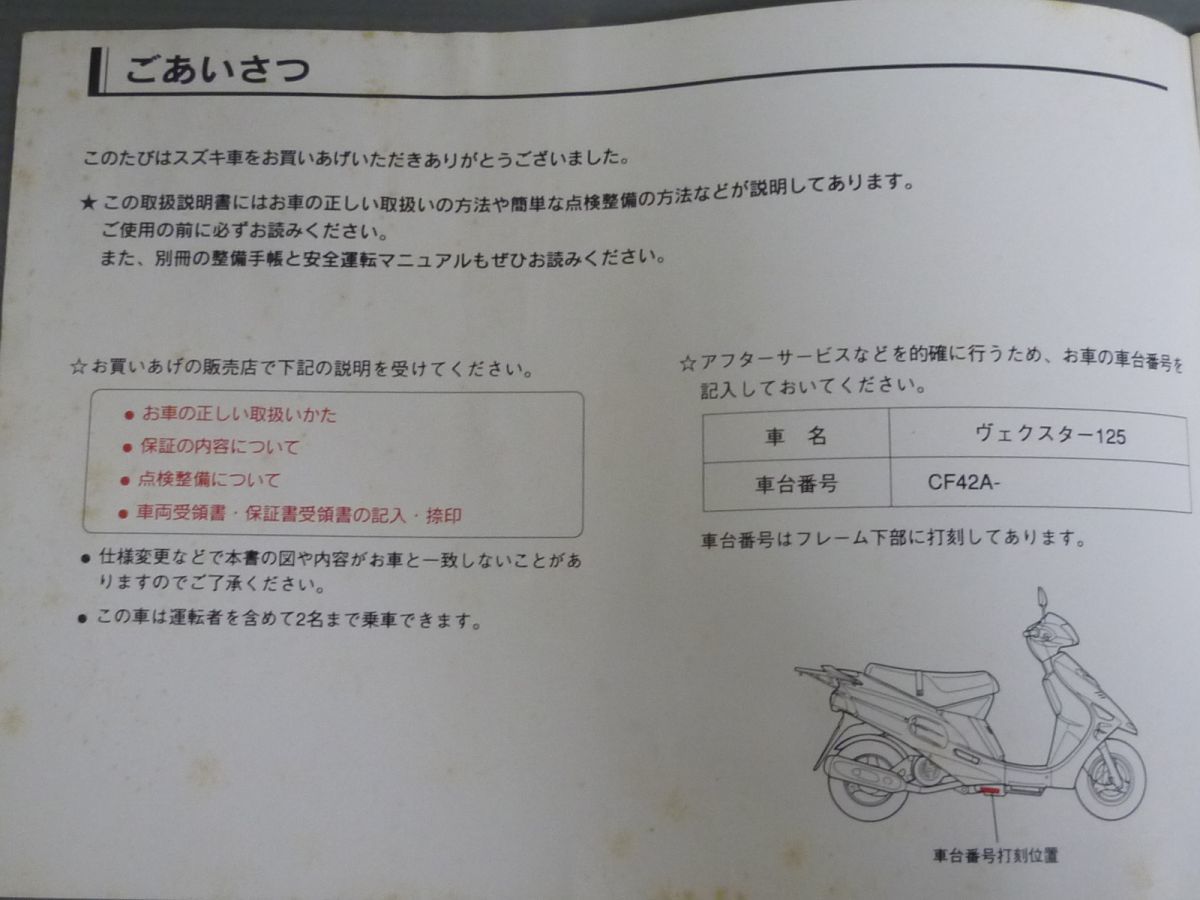 ごあいさつ
このたびはスズキ車をお買いあげいただきありがとうございました。
★ この取扱説明書にはお車の正しい取扱いの方法や簡単な点検整備の方法などが説明してあります。
ご使用の前に必ずお読みください。
また、別冊の整備手帳と安全運転マニュアルもぜひお読みください。
☆お買いあげの販売店で下記の説明を受けてください。
● お車の正しい取扱いかた
● 保証の内容について
● 点検整備について
● 車両受領書・保証書受領書の記入・捺印
● 仕様変更などで本書の図や内容がお車と一致しないことがあ
りますのでご了承ください。
● この車は運転者を含めて2名まで乗車できます。
☆アフターサービスなどを的確に行うため、お車の車台番号を
記入しておいてください。
車 名 ヴェクスター125
車台番号 CF42A-
車台番号はフレーム下部に打刻してあります。
車台番号打刻位置